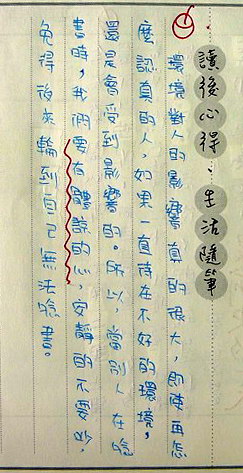 讀後心得：生活隨筆
環境對人的影響真的很大，即使再怎
麼認真的人，如果一直待在不好的環境，
還是會受到影響的。所以，當別人在唸
書時，我們要有體諒的心，安靜的不要吵，
免得後來輪到自己無法唸書。